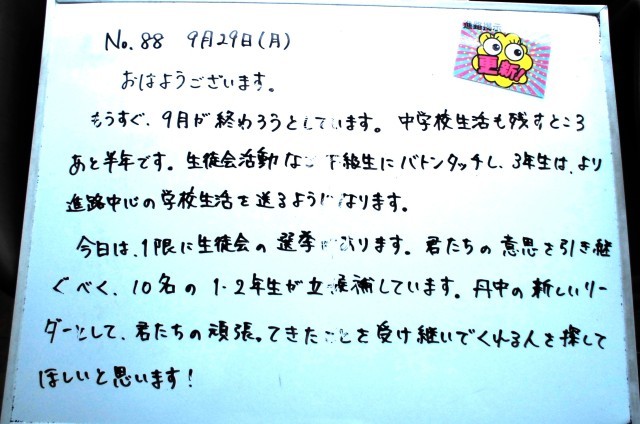 No.88 9月29日(月)
進路掲示
更新!
おはようございます。
もうすぐ、9月が終わろうとしています。中学校生活も残すところ
あと半年です。生徒会活動など下級生にバトンタッチし、3年生は、より
進路中心の学校生活を送るようになります。
今日は、1限に生徒会の選挙があります。君たちの意思を引き継
ぐべく、10名の1・2年生が立候補しています。丹中の新しいリー
ダーとして、君たちの頑張ってきたことを受け継いでくれる人を探して
ほしいと思います!